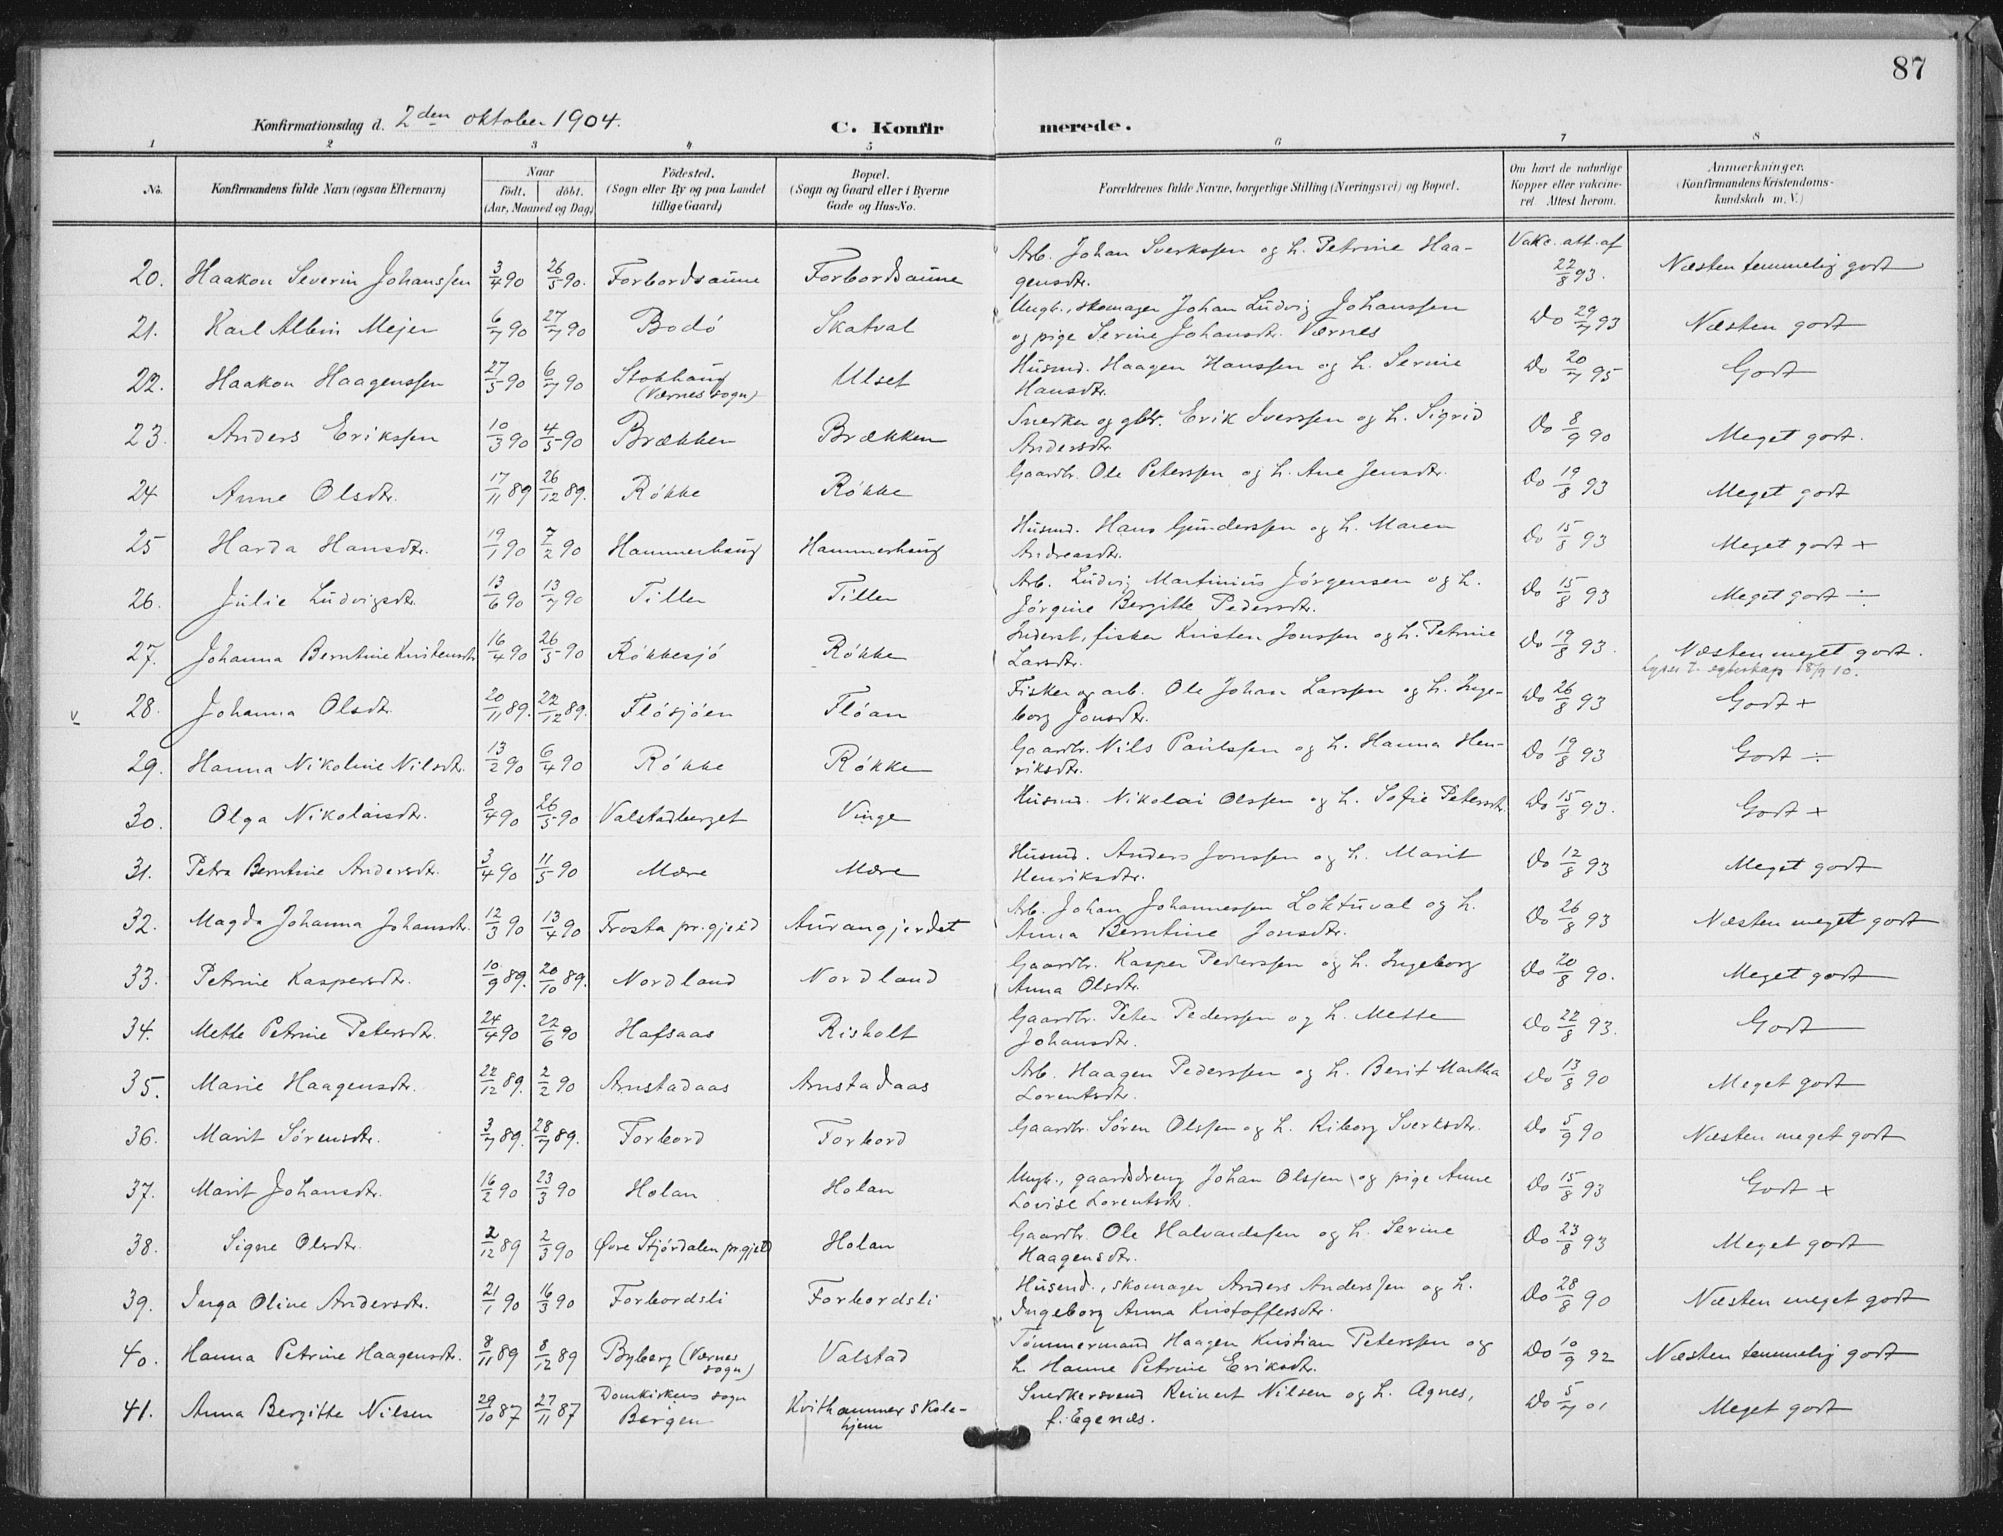 87
Konfirmationsdag d. 2den oktober 1904.
C. Konfirmerede.
1 2 3 4 5 6 7 8
No. Konfirmandens fulde Navn (ogsaa Efternavn) Naar födt, döbt. (Aar, Maaned og Dag) Födested. (Sogn eller By og paa Landet tillige Gaard) Bopæl. (Sogn og Gaard eller i Byerne Gade og Hus-No. Forældrenes fulde Navne, borgerlige Stilling (Næringsvei) og Bopæl. Om havt de naturlige Kopper eller vakcineret. Attest herom. Anmærkninger. (Konfirmandens Kristendomskundskab m. V.)
20. Haakon Severin Johanssen 3/4 90 26/5 90. Forbordsaune Forbordsaune Arb. Johan Sverkssen og h. Petrine Haagensdtr. Vakc. att. af 22/8 93. Næsten temmelig godt
21. Karl Albin Mejer 6/7 90 27/7 90 Bodö Skatval Ungk., skomager Johan Ludvig Johanssen og pige Serine Johansdtr. Værnes Do 29/7 93 Næsten godt
22. Haakon Haagenssen 27/5 90 6/7 90 Stokhaug (Værnes sogn) Ulset Husmd. Haagen Hanssen og h. Serine Hansdtr. Do 20/7 95 Godt
23. Anders Erikssen 10/3 90 4/5 90 Brækken Brækken Snedker og gbr. Erik Iverssen og h. Sigrid Andersdtr. Do 8/9 90 Meget godt.
24 Anne Olsdtr. 17/11 89 26/12 89. Rökke Rökke Gaardbr. Ole Peterssen og h. Ane Jensdtr. Do 19/8 93 Meget godt
25 Harda Hansdtr. 19/1 90 7/2 90 Hammerhaug Hammerhaug Husmd. Hans Gunderssen og h. Maren Andreasdtr. Do 15/8 93 Meget godt +
26. Julie Ludvigsdtr. 13/6 90 13/7 90 Tiller Tiller Arb. Ludvig Martinius Jörgensen og h. Jörgine Bergitte Pedersdtr. Do 15/8 93 Meget godt ÷
27. Johanna Berntine Kristensdtr 16/4 90 26/5 90 Rökkesjö Rökke Inderst, fisker Kristen Jonssen og h. Petrine Larsdtr. Do 19/8 93. Næsten meget godt.
Lyser t. egteskap 18/9 10.
v 28. Johanna Olsdtr. 20/11 89. 22/12 89. Flösjöen Flöan Fisker og arb. Ole Johan Larssen og h. Ingeborg Jonsdtr. Do 26/8 93 Godt +
29. Hanna Nikoline Nilsdtr. 13/2 90 6/4 90 Rökke Rökke Gaardbr. Nils Paulssen og h. Hanna Henriksdtr. Do 19/8 93 Godt ÷
30. Olga Nikolaisdtr. 8/4 90 26/5 90 Valstadberget Vinge Husmd. Nikolai Olssen og h. Sofie Petersdtr. Do 15/8 93. Godt +
31. Petra Berntine Andersdtr. 3/4 90 11/5 90 Mære Mære Husmd. Anders Jonssen og h. Marit Henriksdtr. Do 12/8 93 Meget godt
32. Magda Johanna Johansdtr. 12/3 90 13/4 90 Frosta pr.gjeld Aurangjerdet Arb. Johan Johannessen Loktuval og h. Anna Berntine Jonsdtr. Do 26/8 93 Næsten meget godt
33. Petrine Kaspersdtr. 10/9 89. 20/10 89. Nordland Nordland Gaardbr. Kasper Pederssen og h. Ingeborg Anna Olsdtr. Do 20/8 90. Meget godt
34. Mette Petrine Petersdtr. 24/4 90 22/6 90 Hafsaas Risholt Gaardbr. Peter Pederssen og h. Mette Johansdtr. Do 22/8 93. Godt
35. Marie Haagensdtr. 22/12 89. 2/2 90 Arnstadaas Arnstadaas Arb. Haagen Pederssen og h. Berit Martha Lorentsdtr. Do 13/8 90 Meget godt
36. Marit Sörensdtr. 3/7 89. 28/7 89. Forbord Forbord Gaardbr. Sören Olssen og h. Kiborg Sverksdtr. Do 5/9 90 Næsten meget godt
37. Marit Johansdtr. 16/2 90 23/3 90 Holan Holan Ungk., gaardsdreng Johan Olssen og pige Anne Lovise Lorentsdtr. Do 15/8 93 Godt +
38. Signe Olsdtr. 2/12 89 2/3 90 Øvre Stjördalen pr.gjeld Holan Gaardbr. Ole Halvardssen og h. Serine Haagensdtr. Do 23/8 93 Meget godt
39. Inga Oline Andersdtr. 21/1 90 16/3 90 Forbordsli Forbordsli Husmd., skomager Anders Anderssen og h. Ingeborg Anna Kristoffersdtr. Do 28/8 90 Næsten meget godt
40. Hanna Petrine Haagensdtr. 8/11 89 8/12 89 Byberg (Værnes sogn) Valstad Tömmermand Haagen Kristian Peterssen og h. Hanne Petrine Eriksdtr. Do 10/9 92 Næsten temmelig godt
41. Anna Bergitte Nilsen 29/10 87 27/11 87 Domkirkens sogn Bergen Kvithammer skolehjem Snedkersvend Reinert Nilsen og h. Agnes, f. Egenæs. Do 5/7 01 Meget godt